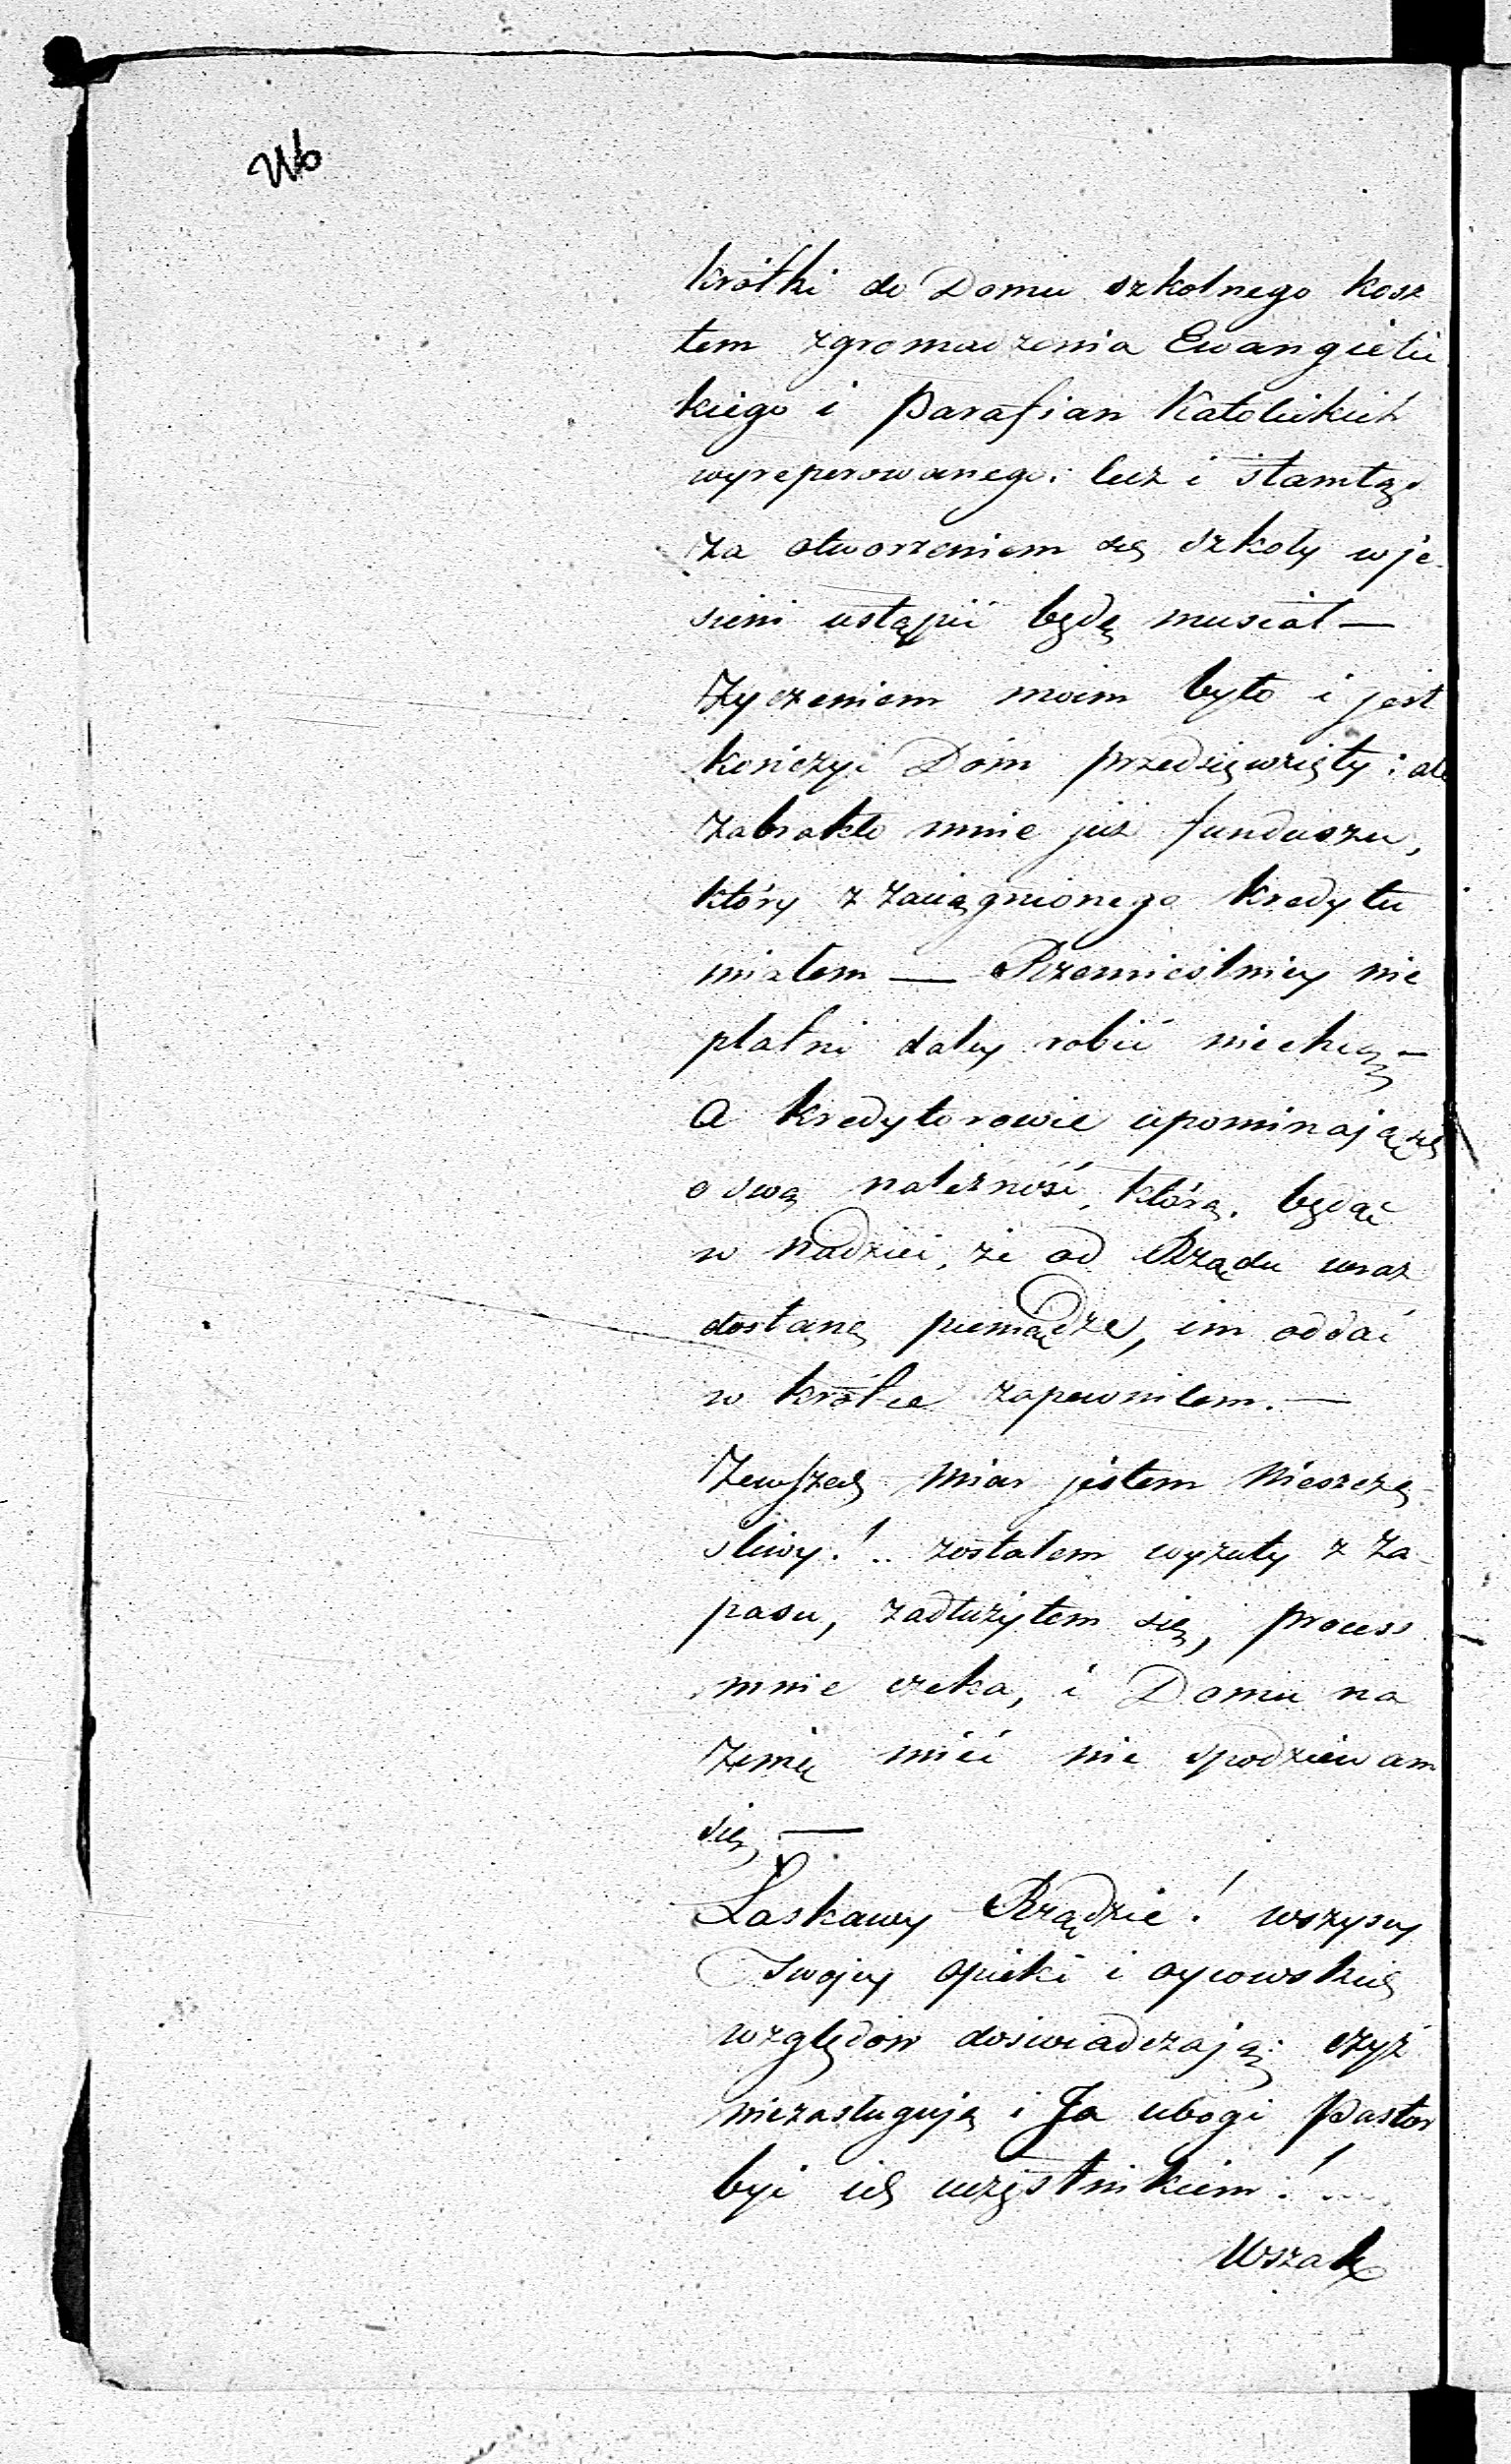 krótki do Domu szkolnego kosz
tem zgromadzenia Ewangielic
kiego i Parafian Katolickich
wyreperowanego: lecz i stamtąd
za otworzeniem się szkoły w je-
sieni ustąpić będę musiał —
Życzeniem moim było i jest
kończyć Dóm przedsięwzięty: ale
zabrakło mnie już funduszu,
który z zaciągnionego kredytu
miałem — Rzemieślnicy nie
płatni daley robić niechcą —
a kredytorowie upominają się
o swą należność, którą, będąc
w nadziei, że od Rządu wraz
dostanę pieniądze, im oddać
w krótce zapewniłem. —
Zewszech miar jestem nieszczę-
śliwy!.. zostałem wyzuty z za-
pasu, zadłużyłem się, process
mnie czeka, i Domu na
zimę mieć nie spodziewam
się, —
Łaskawy Rządzie! wszyscy
Twojey opieki i oycowskich
względów doświadczają: czyż
niezasługuję i Ja ubogi Pastor
być ich uczęstnikiem!
Wszak